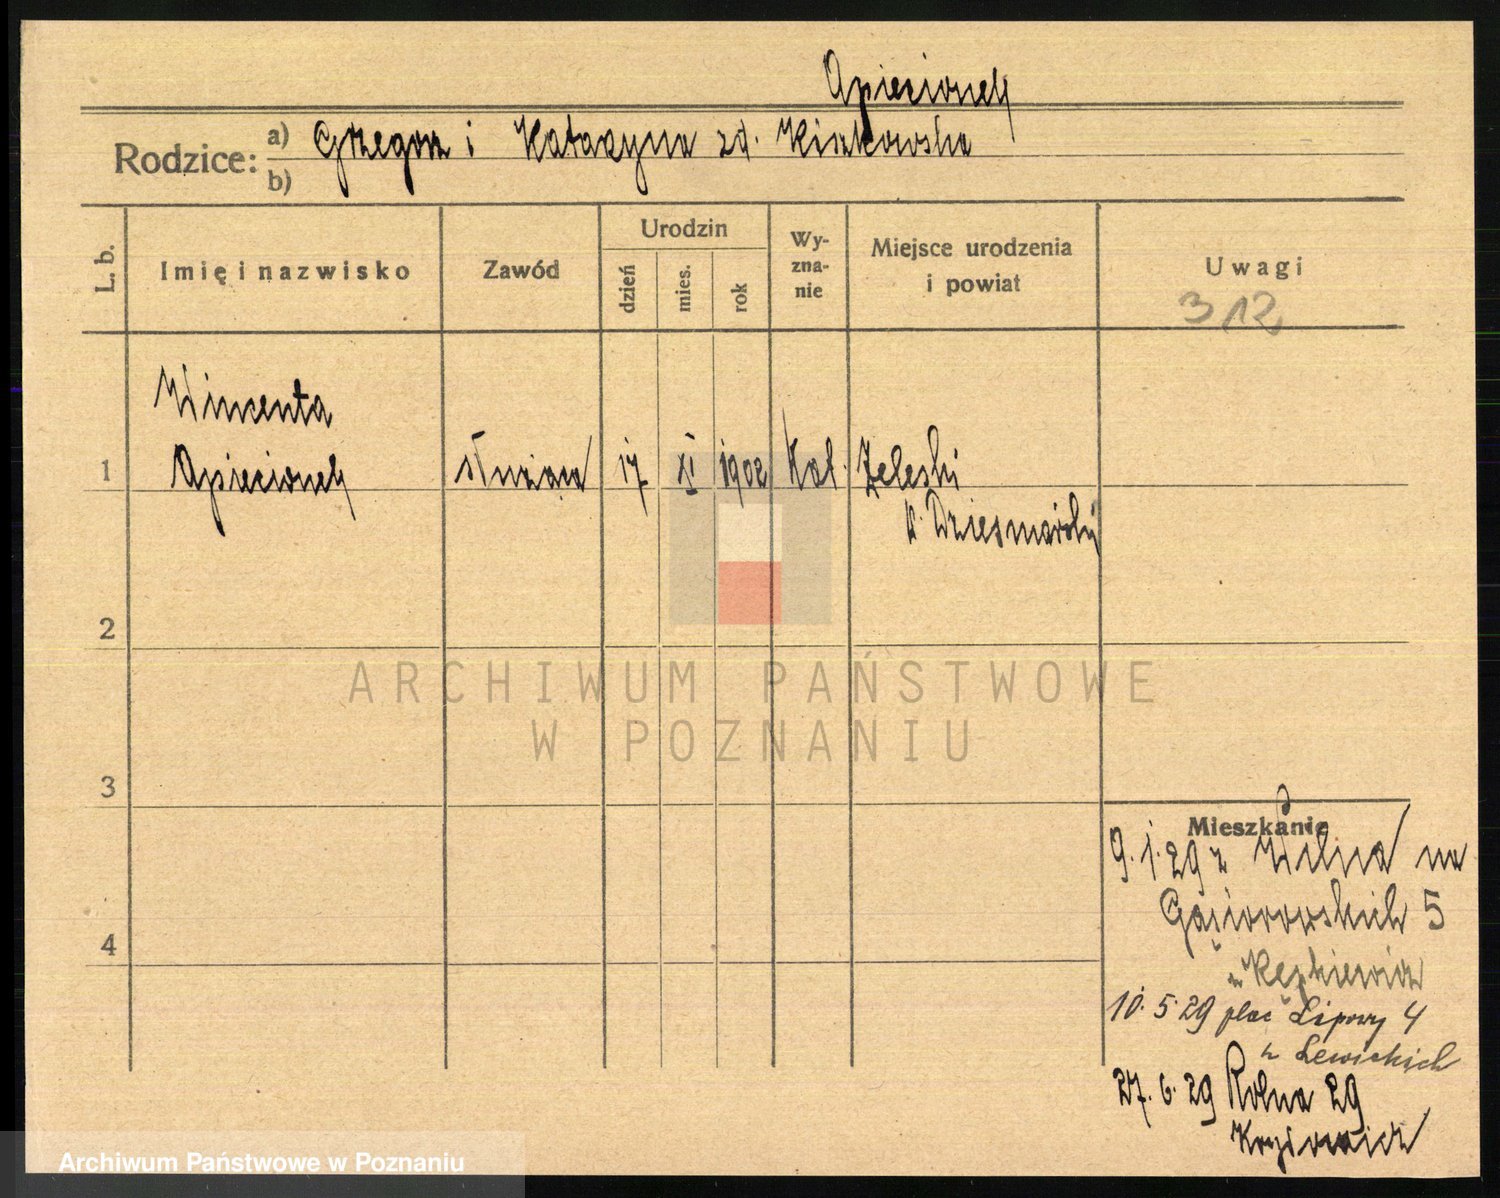 Apiecionek
Rodzice: a) Grzegorz i Katarzyna zd. Kiszkowska
b)
L. b.
Imię i nazwisko
Zawód
Urodzin
dzień
mies.
rok
Wy-
zna-
nie
Miejsce urodzenia
i powiat
Uwagi
312
Wincenta
1 Apiecionek służąca 17 XI 1902 Kat. Zeleski
p.
2
ARCHIWUM PAŃSTWOWE
W POZNANIU
3
Mieszkanie
9.1.29 z Wilna na
Gąsiorowskich 5
4
10.5.29 plac Lipowy 4
u Lewickich
27.6.29 Rolna 29
Archiwum Państwowe w Poznaniu